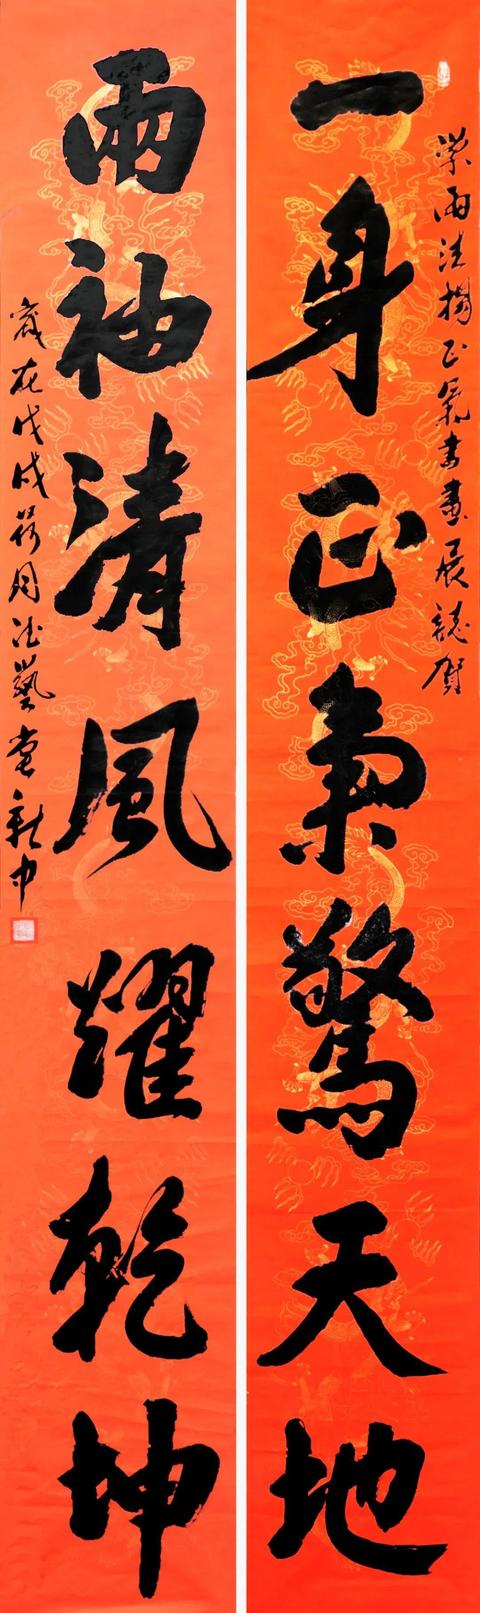 一身正氣驚天地
正氣書畫展誌賀
兩袖清風耀乾坤
歲在戊戌荷月藝堂新中